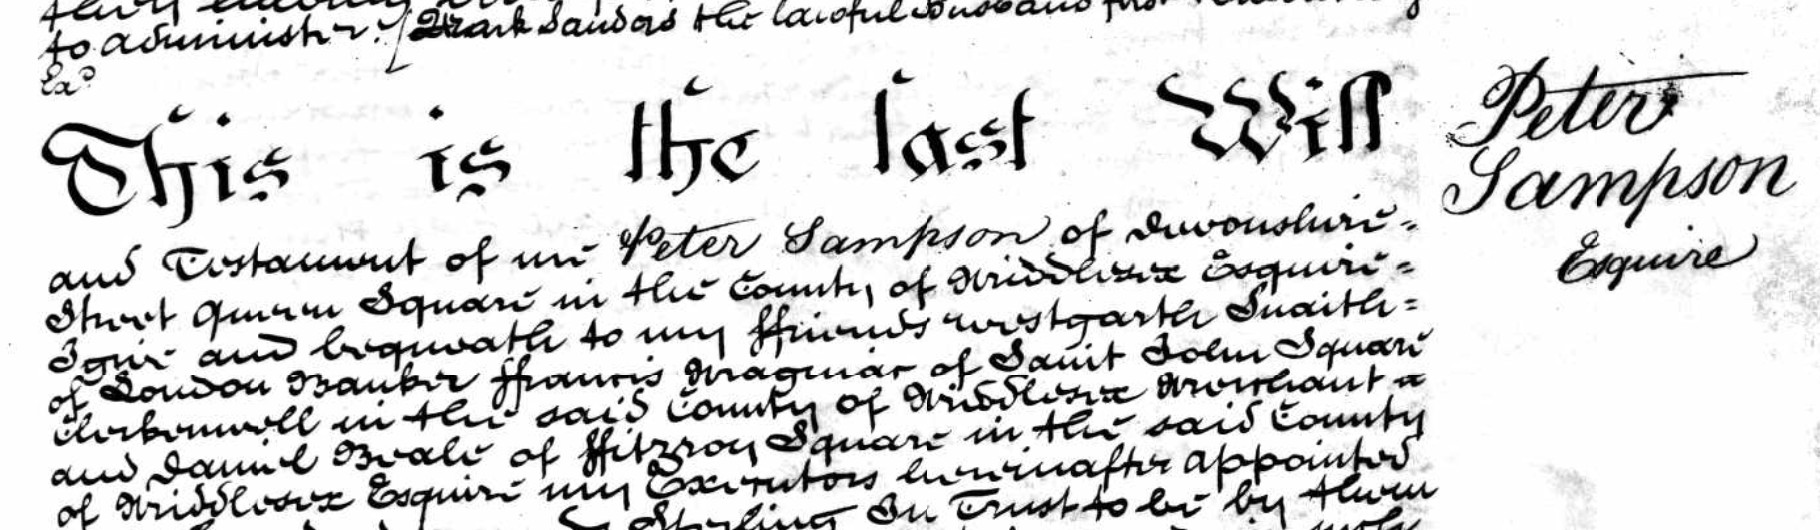 to administer. Mark Sanders the lawful Husband first
Exd
This is the last Will
and Testament of me Peter Sampson of Devonshire =
Street Queen Square in the County of Middlesex Esquire =
I give and bequeath to my ffriends Westgarth Snaith =
of London Banker ffrancis Magniac of Saint John Square
Clerkenwell in the said County of Middlesex Merchant
and Daniel Beale of ffitzroy Square in the said County
of Middlesex Esquire my Executors hereinafter appointed
Sterling In Trust to be by them
Peter
Sampson
Esquire